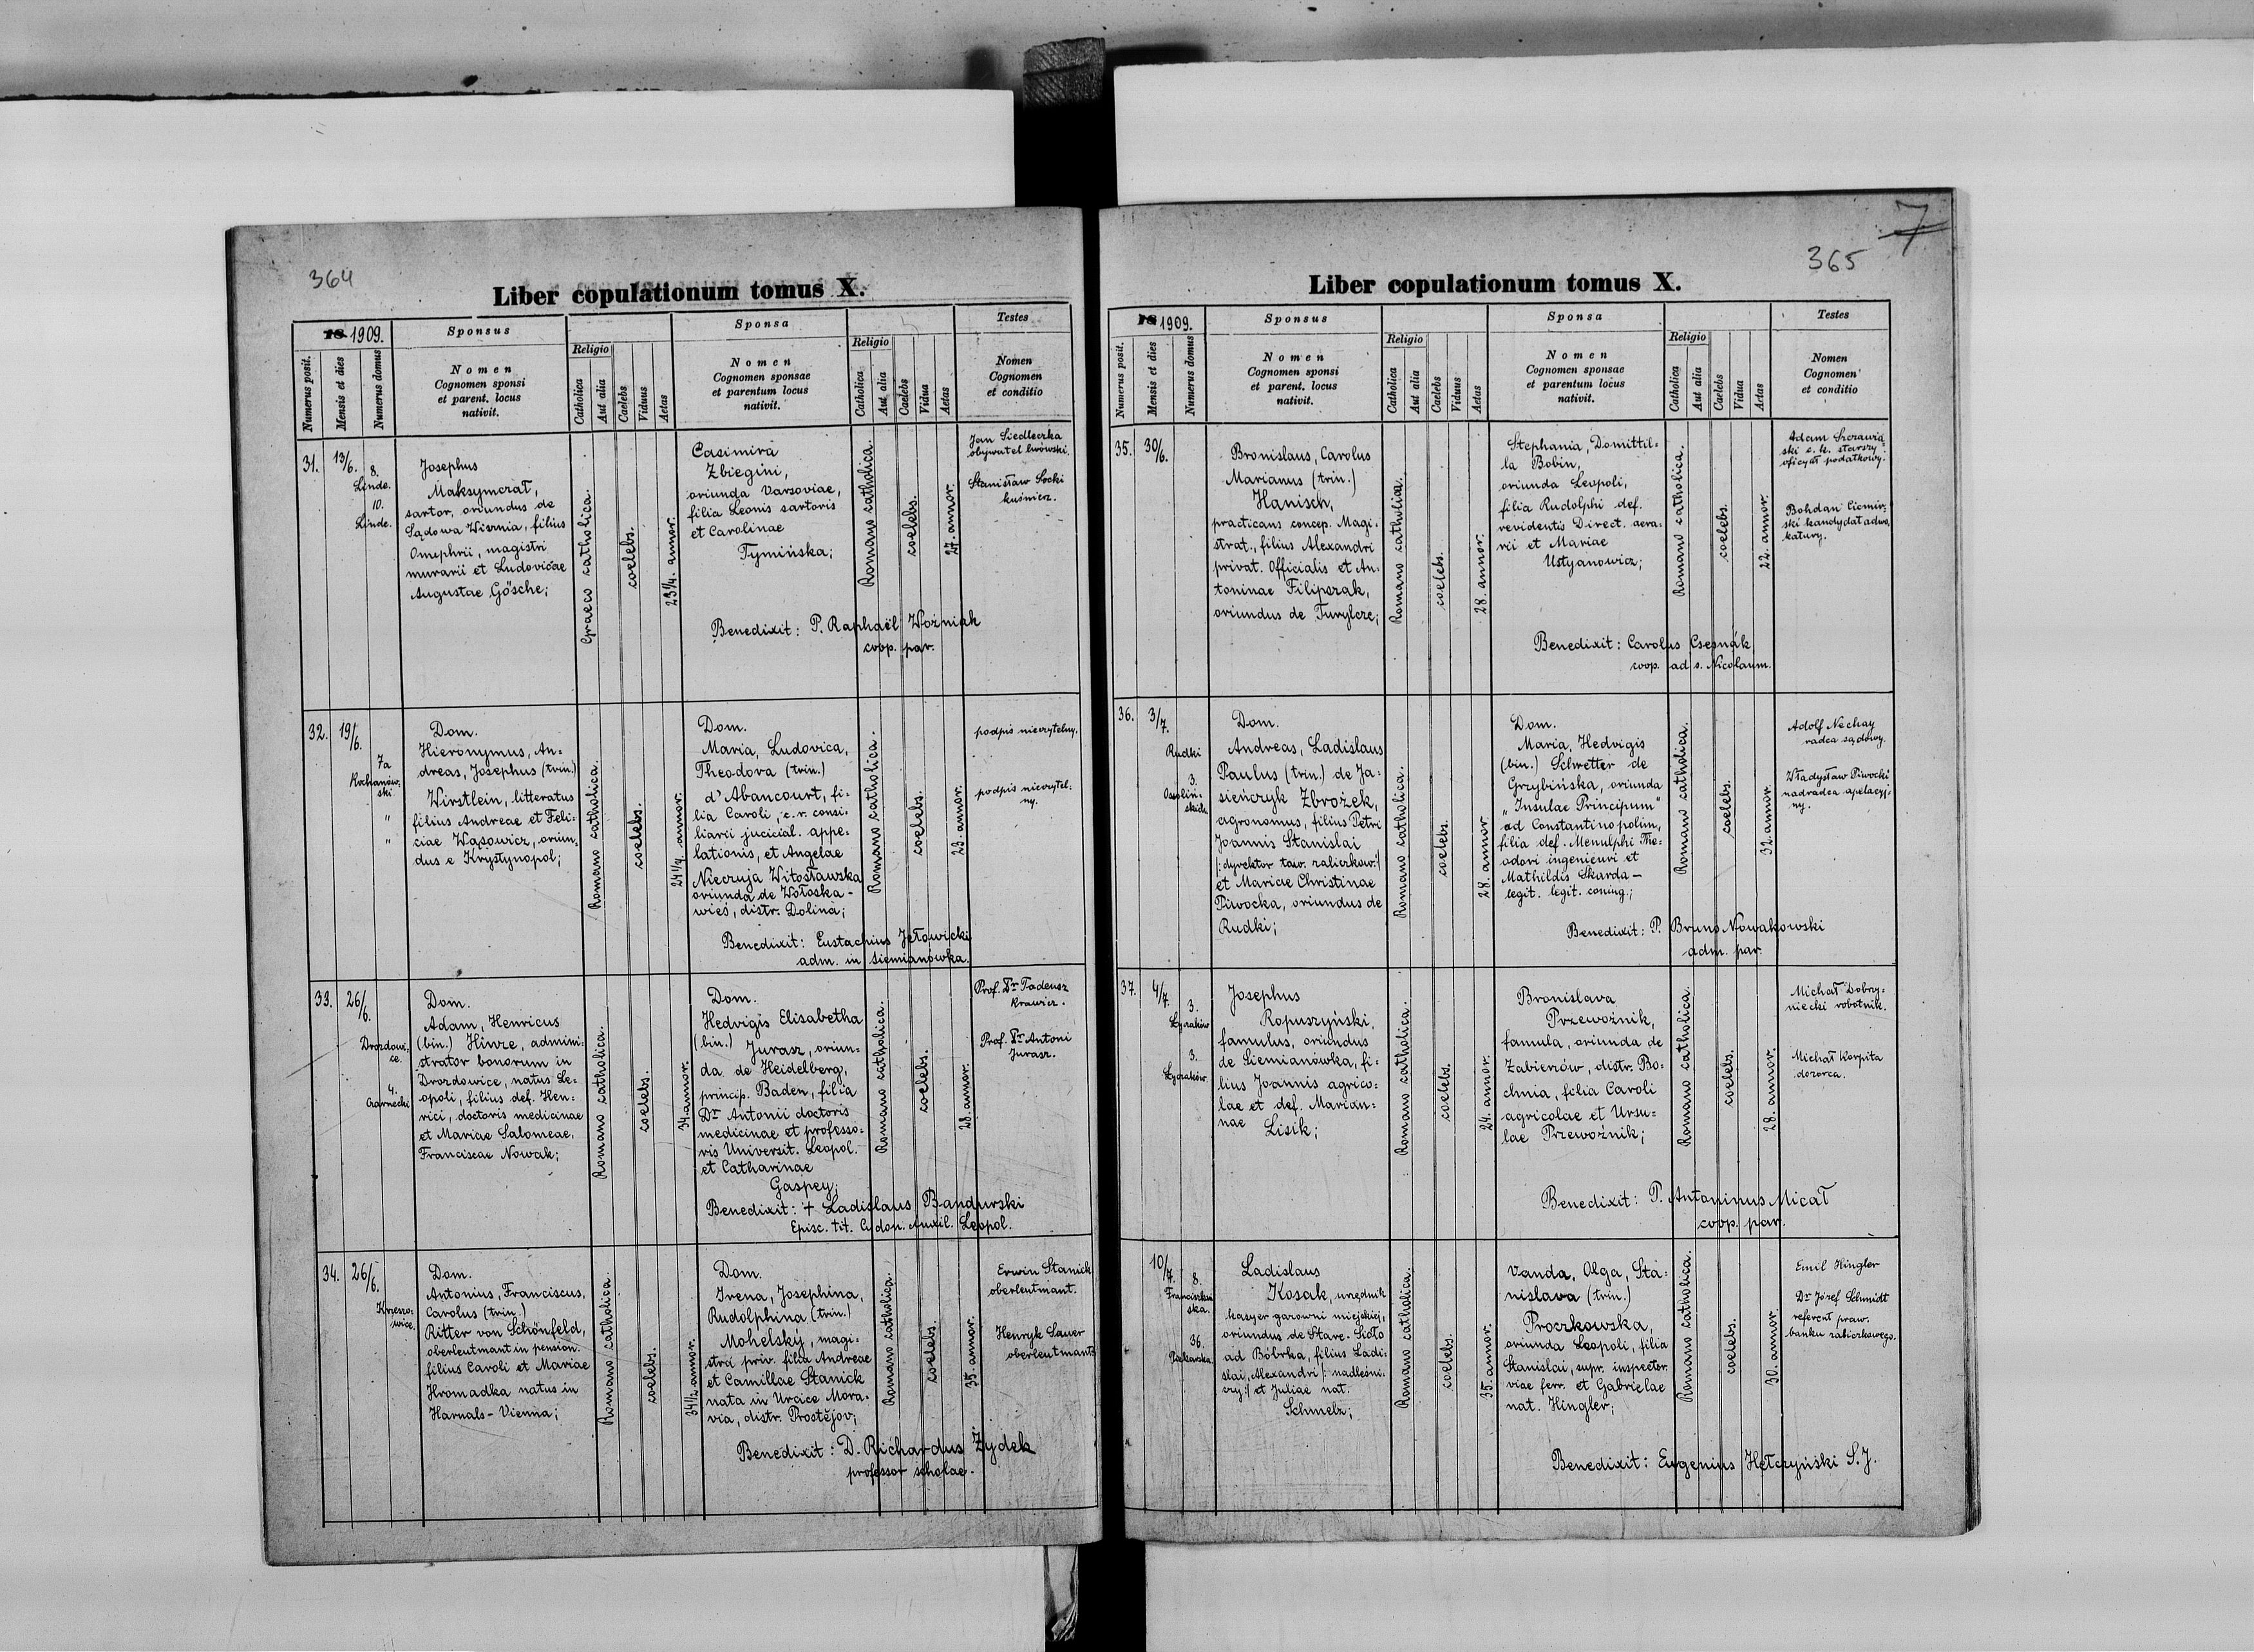 364
Liber copulationum tomus X.
18 1909.
Sponsus
Sponsa
Testes
Numerus posit.
Mensis et dies
Numerus domus
Nomen
Cognomen sponsi
et parent. locus
nativit.
Religio
Catholica
Aut alia
Caelebs
Viduus
Aetas
Nomen
Cognomen sponsae
et parentum locus
nativit.
Religio
Catholica
Aut alia
Caelebs
Vidua
Aetas
Nomen
Cognomen
et conditio
31.
13/6.
8.
Linde.
10.
Linde.
Josephus
Maksymczat,
sartor, oriundus de
Sądowa Wisznia, filius
Onuphrii, magistri
murarii et Ludovicae
Augustae Gösche;
Graeco catholica.
coelebs.
23 1/4. annor.
Casimira
Zbiegini,
oriunda Varsoviae,
filia Leonis sartoris
et Carolinae
Tymińska;
Romano catholica.
coelebs.
27. annor.
Jan Siedleczka
obywatel lwowski.
Stanisław Socki
kuśnierz.
Benedixit: P. Raphaël Woźniak
coop. par.
32.
19/6.
7a
Kochanow-
ski
"
"
Dom.
Hieronymus, An-
dreas, Josephus (trin.)
Wirstlein, litteratus
filius Andreae et Feli-
ciae Wąsowicz, oriun-
dus e Krystynopol;
Romano catholica.
coelebs.
24 1/4. annor.
Dom.
Maria, Ludovica,
Theodora (trin.)
d'Abancourt, fi-
lia Caroli, c. r. consi-
liarii jucicial. appe-
lationis, et Angelae
Nieczuja Witosławska
oriunda de Wołoska-
wieś, distr. Dolina;
Romano catholica.
coelebs.
23. annor.
podpis nieczytelny.
podpis nieczytel-
ny.
Benedixit: Eustachius Jełowicki
adm. in Siemianówka.
33.
26/6.
Drozdowi-
ce.
4.
Czarnecki
Dom.
Adam, Henricus
(bin.) Hinze, admini-
strator bonorum in
Drozdowice, natus Le-
opoli, filius def. Hen-
rici, doctoris medicinae
et Mariae Salomeae,
Franciscae Nowak;
Romano catholica.
coelebs.
34. annor.
Dom.
Hedvigis Elisabetha
(bin.) Jurasz, oriun-
da de Heidelberg,
princip. Baden, filia
Dr. Antonii doctoris
medicinae et professo-
ris Universit. Leopol.
et Catharinae
Gaspey;
Romano catholica.
coelebs.
28. annor.
Prof. Dr. Tadeusz
Krawicz.
Prof. Dr. Antoni
Jurasz.
Benedixit: + Ladislaus Bandurski
Episc. tit. Cydon. Auxil. Leopol.
34.
26/6.
Krzeszo-
wice.
Dom.
Antonius, Franciscus,
Carolus (trin.)
Ritter von Schönfeld,
oberleutmant in pension.
filius Caroli et Mariae
Hromadka natus in
Harnals - Vienna;
Romano catholica.
coelebs.
34 1/2 annor.
Dom.
Irena, Josephina,
Rudolphina (trin.)
Mohelský, magi-
stra priv. filia Andreae
et Camillae Stanick
nata in Urcice Mora-
via, distr. Prostějov;
Romano catholica.
coelebs.
35. annor.
Erwin Stanick
oberleutmant.
Henryk Sauer
oberleutmant
Benedixit: D. Richardus Żydek
professor scholae.
7
365
Liber copulationum tomus X.
18 1909.
Sponsus
Sponsa
Testes
Numerus posit.
Mensis et dies
Numerus domus
Nomen
Cognomen sponsi
et parent. locus
nativit.
Religio
Catholica
Aut alia
Caelebs
Viduus
Aetas
Nomen
Cognomen sponsae
et parentum locus
nativit.
Religio
Catholica
Aut alia
Caelebs
Vidua
Aetas
Nomen
Cognomen
et conditio
35.
30/6.
Bronislaus, Carolus
Marianus (trin.)
Hanisch,
practicans concep. Magi-
strat., filius Alexandri
privat. Officialis et An-
toninae Filipszak,
oriundus de Turylcze;
Romano catholica.
coelebs.
28. annor.
Stephania, Domittil-
la Bobin,
oriunda Leopoli,
filia Rudolphi def.
revidentis Direct. aera-
rii et Mariae
Ustyanowicz;
Romano catholica.
coelebs.
22. annor.
Adam Szczawiń-
ski c. k. starszy
oficyał podatkowy.
Bohdan Ciemir-
ski kandydat adwo-
katury.
Benedixit: Carolus Csesnák
coop. ad s. Nicolaum.
36.
3/7.
Rudki
3.
Ossoliń-
skich.
Dom.
Andreas, Ladislaus
Paulus (trin.) de Ja-
sieńczyk Zbrożek,
agronomus, filius Petri
Joannis Stanislai
/:dyrektor tow. zaliczkow:/
et Mariae Christinae
Piwocka, oriundus de
Rudki;
Romano catholica.
coelebs.
28. annor.
Dom.
Maria, Hedvigis
(bin.) Schvetter de
Grzybińska, oriunda
"Insulae Principum"
ad Constantinopolim,
filia def. Menulphi The-
odori ingenieuri et
Mathildis Skarda -
legit. legit. coniug.;
Romano catholica.
coelebs.
32. annor.
Adolf Nechay
radca sądowy.
Władysław Piwocki
nadradca apelacyj-
ny.
Benedixit: P. Bruno Nowakowski
adm. par.
37.
4/7.
3.
Łyczaków
3.
Łyczaków.
Josephus
Ropuszyński,
famulus, oriundus
de Siemianówka, fi-
lius Joannis agrico-
lae et def. Marian-
nae Lisik;
Romano catholica.
coelebs.
24. annor.
Bronislava
Przewoźnik,
famula, oriunda de
Zabierów, distr. Bo-
chnia, filia Caroli
agricolae et Ursu-
lae Przewoźnik;
Romano catholica.
coelebs.
28. annor.
Michał Dobry-
niecki robotnik.
Michał Korpita
dozorca.
Benedixit: P. Antoninus Micał
coop. par.
10/7.
8.
Franciszkań-
ska.
36.
Piekarska.
Ladislaus
Kosak, urzędnik
kasyer gazowni miejskiej,
oriundus de Stare-Sioło
ad Bóbrka, filius Ladi-
slai, Alexandri /: nadleśni-
czy:/ et Juliae nat.
Schmelz;
Romano catholica.
coelebs.
35. annor.
Vanda, Olga, Sta-
nislava (trin.)
Proczkowska,
oriunda Leopoli, filia
Stanislai, supr. inspector.
viae ferr. et Gabrielae
nat. Hingler;
Romano catholica.
coelebs.
30. annor.
Emil Hingler
Dr Józef Schmidt
referent praw.
banku zaliczkowego.
Benedixit: Eugenius Hełczyński S.J.